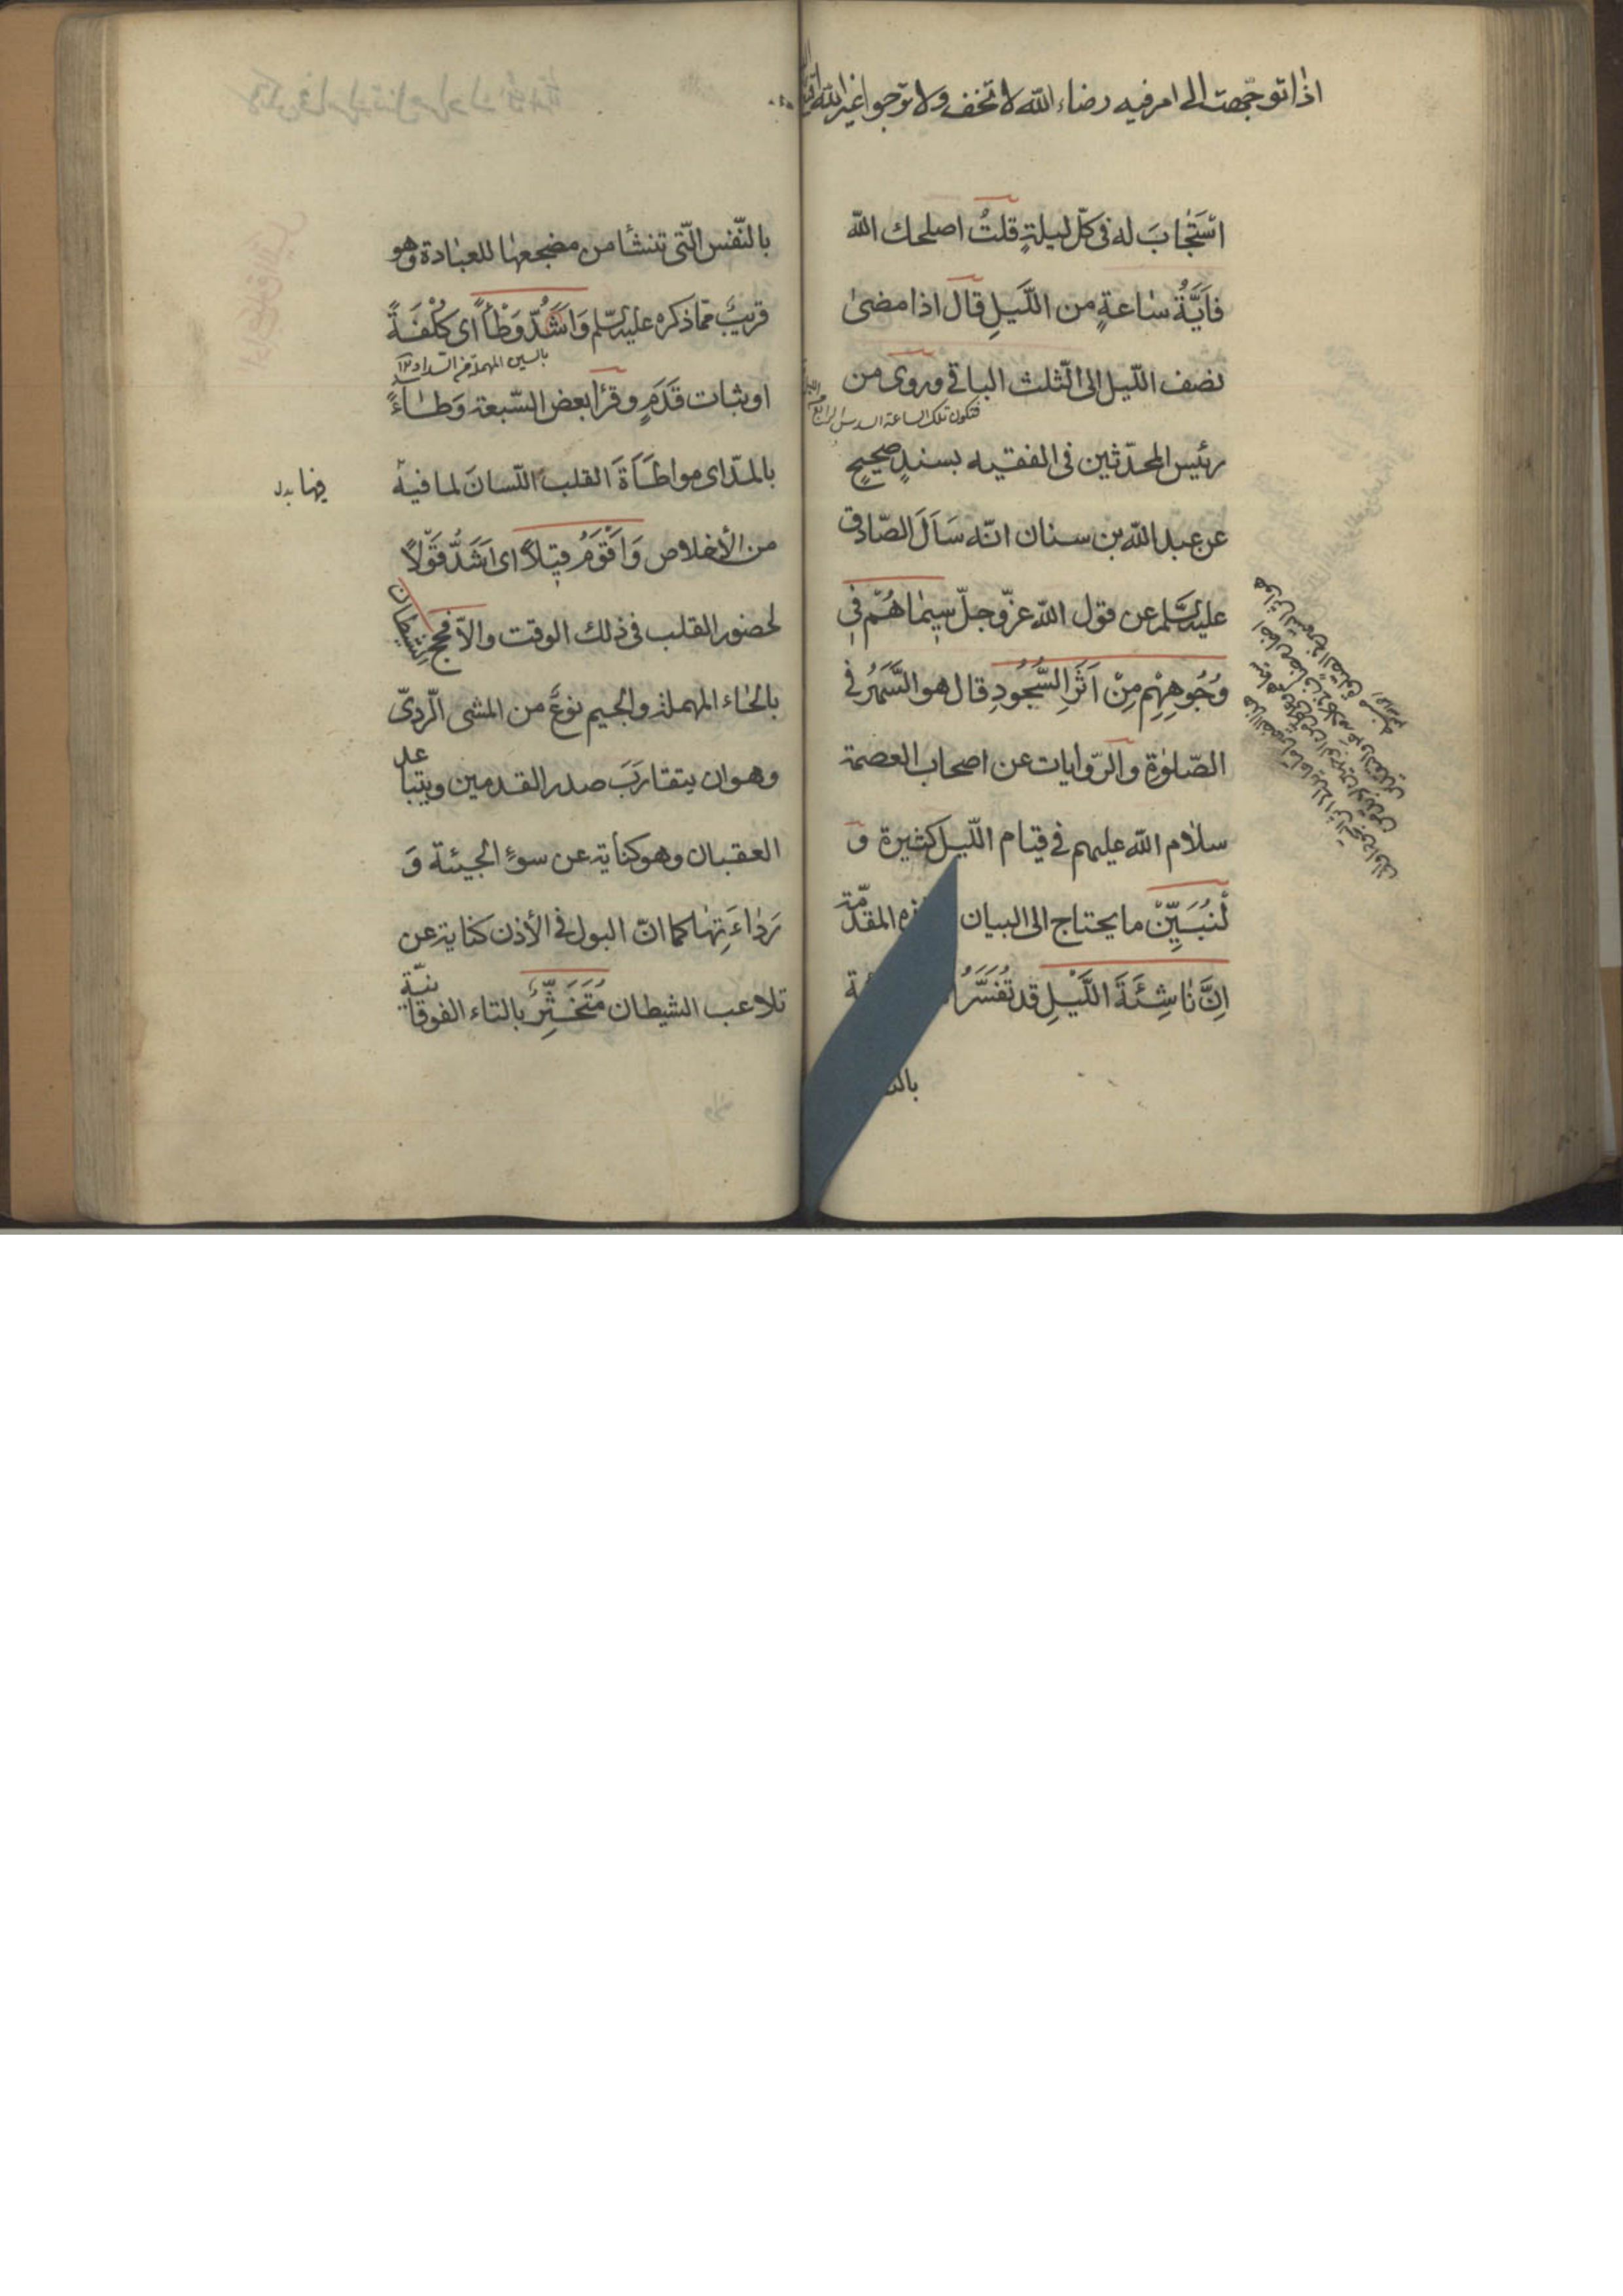 اذا توجّهت الى امر فيه رضاء الله لا تخف ولا ترجوا غير الله
اسْتَجٰابَ له فى كلّ ليلةٍ قلتُ اصلحك الله
فاَيَّةُ سٰاعةٍ من اللَّيلِ قال اذا مضىٰ
نصف اللّيل الى الثّلث الباقى وروى من
فتكون تلك الساعة السدس الرابع
رئيس المحدّثين فى الفقيه بسندٍ صحيحٍ
عن عبد الله بن سنان انّه سَاَلَ الصّادق
عليه السّلم عن قول الله عزّ وجلّ سِيمٰاهُمْ فِى
وُجُوهِهِمْ مِنْ اَثَرِ السُّجُودِ قال هو السَّهَرُ فى
الصّلوٰة والرّوايات عن اصحاب العصمة
سلٰام الله عليهم فى قيام اللّيل كثيرة وَ
لْنُبَيِّنْ ما يحتاج الى البيان المقدّمة
اِنَّ نٰاشِئَةَ اللَّيْلِ قد تُفَسَّرُ
بالنّفس الّتى تنشأ من مضجعهٰا للعبٰادة وهو
قريبٌ ممّا ذكره عليه السّلم وَاَشَدُّ وَطْأً اى كُلْفَةً
بالسين المهملة من السداد
او ثبات قَدَمٍ وقرأ بعض السّبعة وَطٰاءً
بالمدّ اى مواطَأَةَ القلب اللّسانَ لما فيه
فيها بدل
من الأخلاص وَاَقْوَمُ قِيلاً اى اَشَدُّ قَوْلاً
لحضور القلب فى ذلك الوقت والاّ فحج الشيطان
بالحٰاء المهملة والجيم نوعٌ من المشى الرّدىّ
وهو ان يتقاربَ صدر القدمين ويتباعد
العقبان وهو كناية عن سوءِ الجيئة وَ
رَدٰاءَتِهٰا كما انّ البول فى الأذن كناية عن
تلاعب الشيطان مُتَخَثِّرٌ بالتاء الفوقانيّة